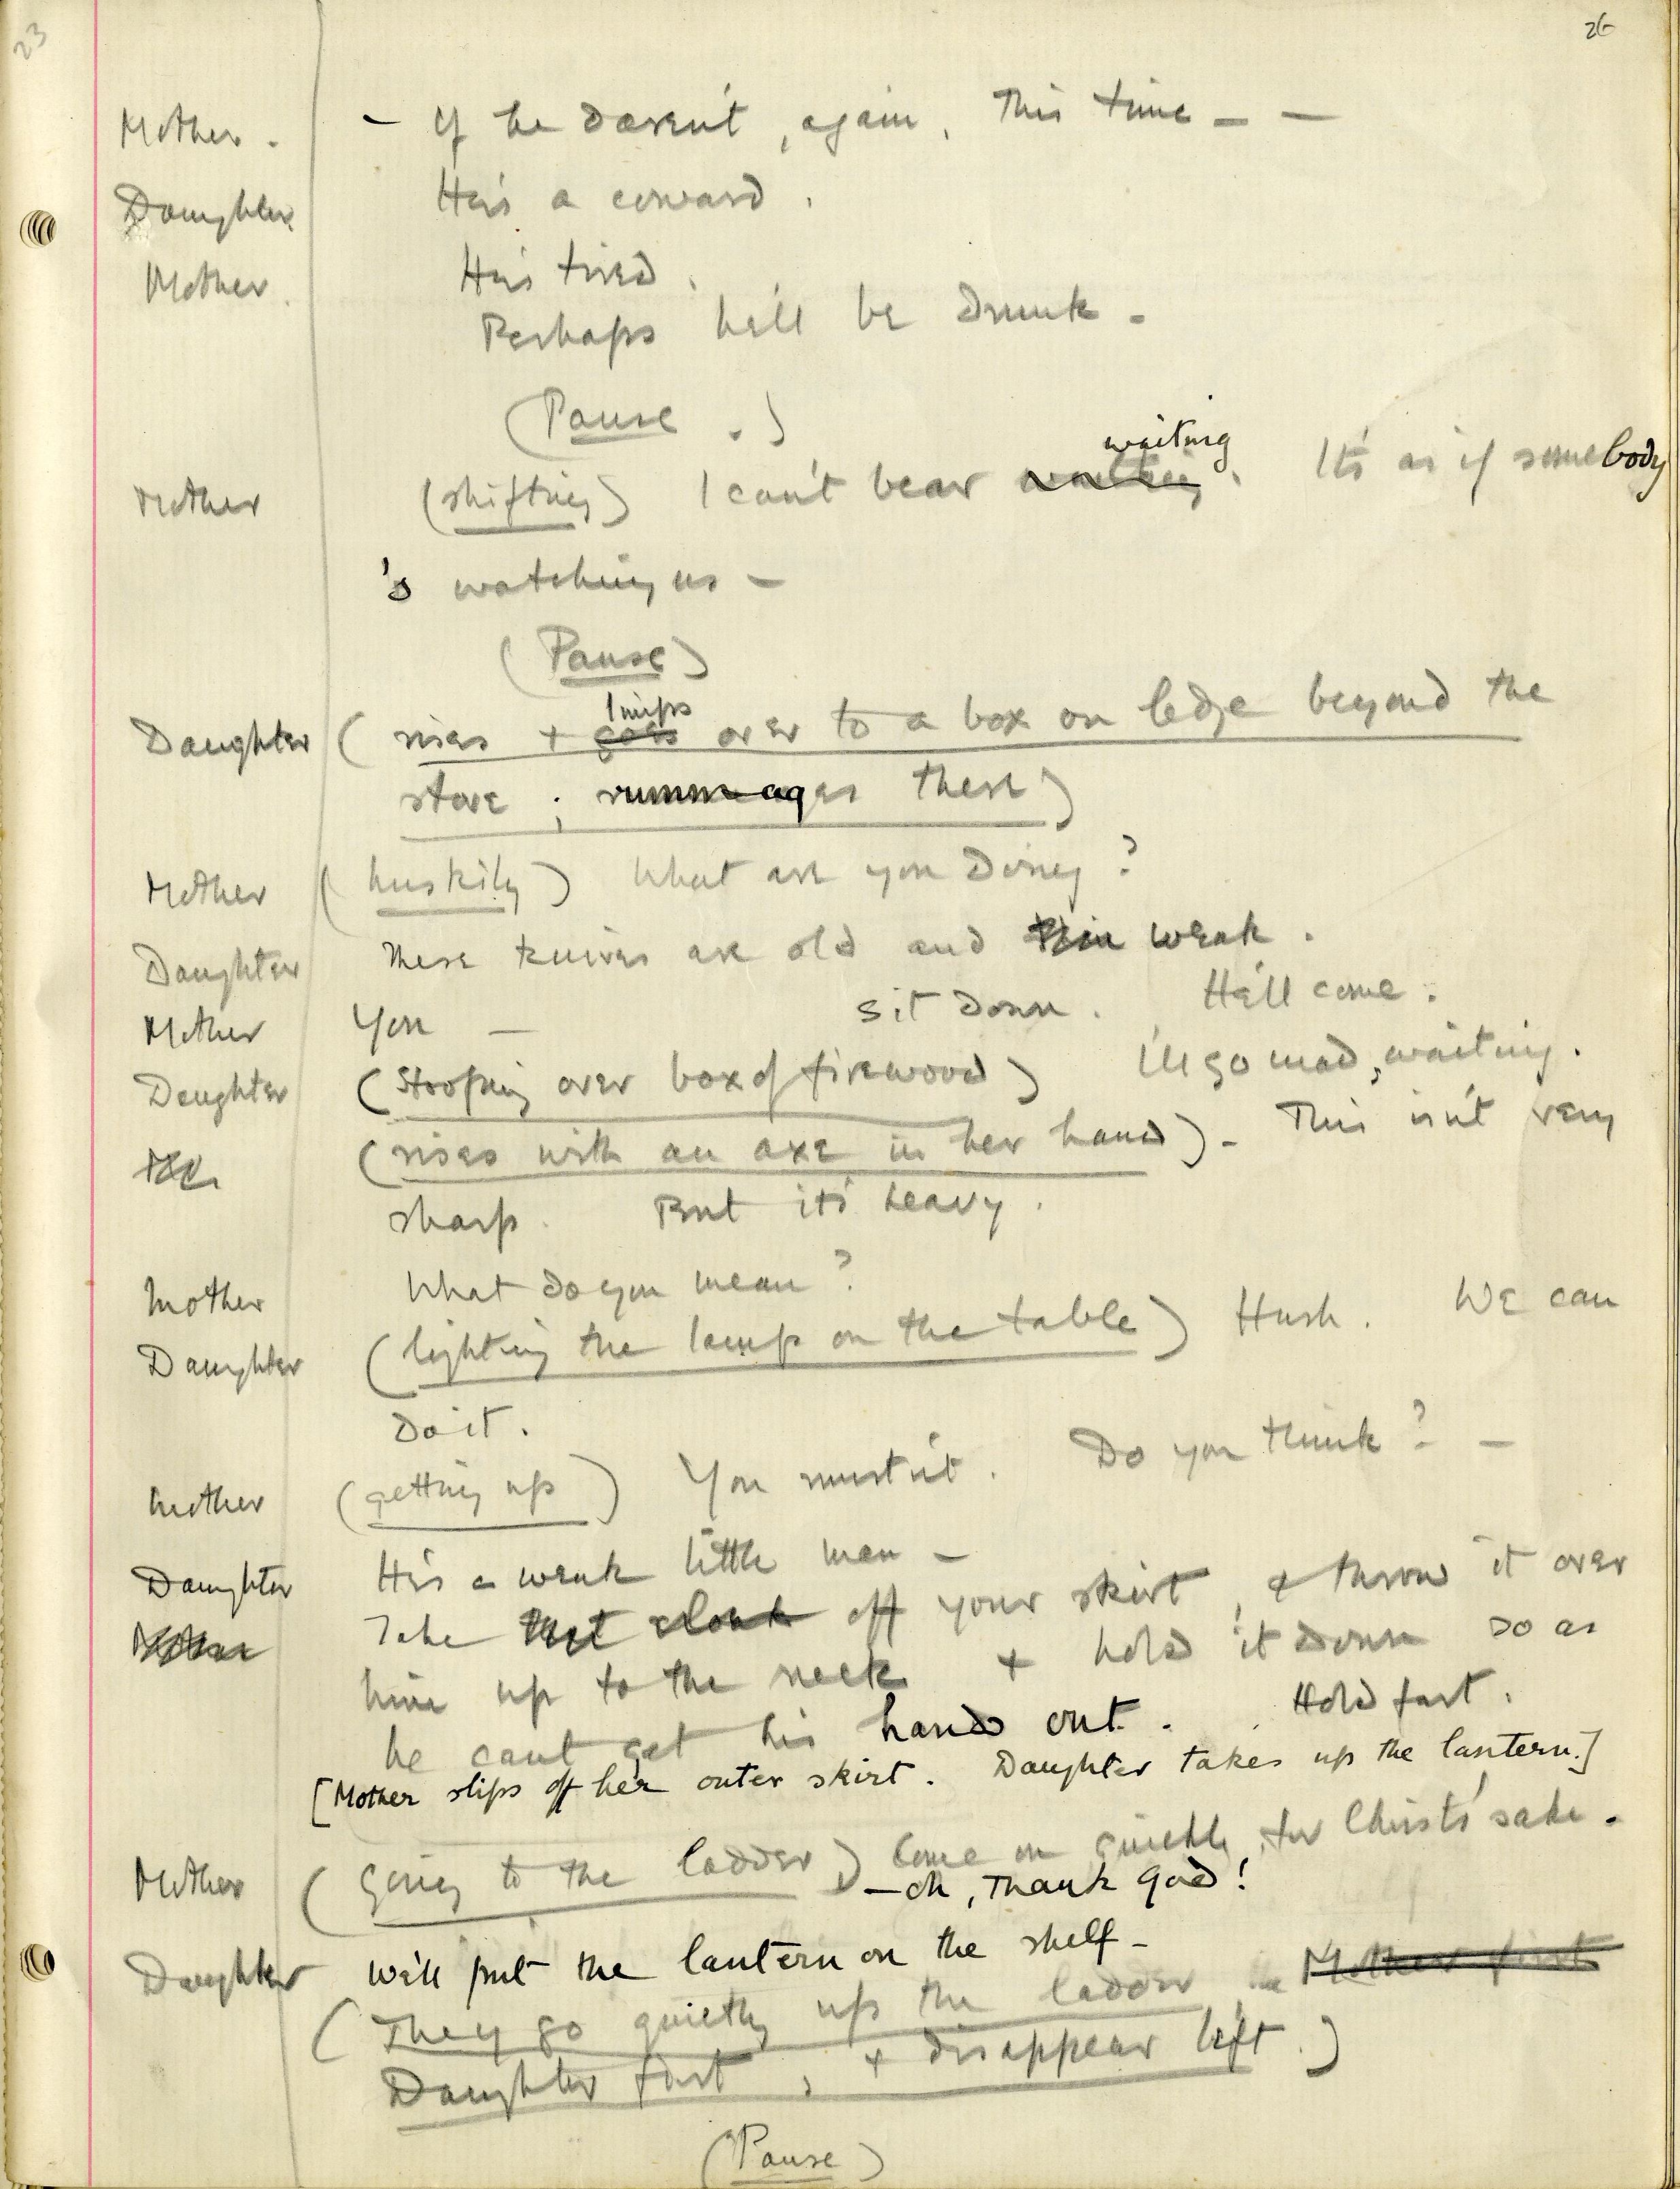 23
26
Mother. - If he daren't, again. This time - -
Daughter. He's a coward.
Mother. He's tired.
Perhaps he'll be drunk -
(Pause.)
waiting
Mother (shifting) I can't bear waiting. It's as if somebody
's watching us -
(Pause)
limps
Daughter (rises + goes over to a box on ledge beyond the
stove; rummages there)
Mother (huskily) What are you doing?
Daughter These knives are old and thin weak.
Mother You - sit down. He'll come.
Daughter (stooping over box of firewood) I'll go mad, waiting.
(rises with an axe in her hand) - This isn't very
sharp. But it's heavy.
Mother What do you mean?
Daughter (lighting the lamp on the table) Hush. We can
do it.
Mother (getting up) You mustn't. Do you think? -
Daughter He's a weak little man -
Mother Take that cloak off your skirt, & throw it over
him up to the neck + hold it down so as
he can't get his hands out. Hold fast.
[Mother slips off her outer skirt. Daughter takes up the lantern.]
Mother (Going to the ladder) Come on quickly, for Christ's sake.
- oh, Thank God!
Daughter We'll put the lantern on the shelf -
(They go quietly up the ladder Mother first
Daughter first, + disappear left.)
(Pause)